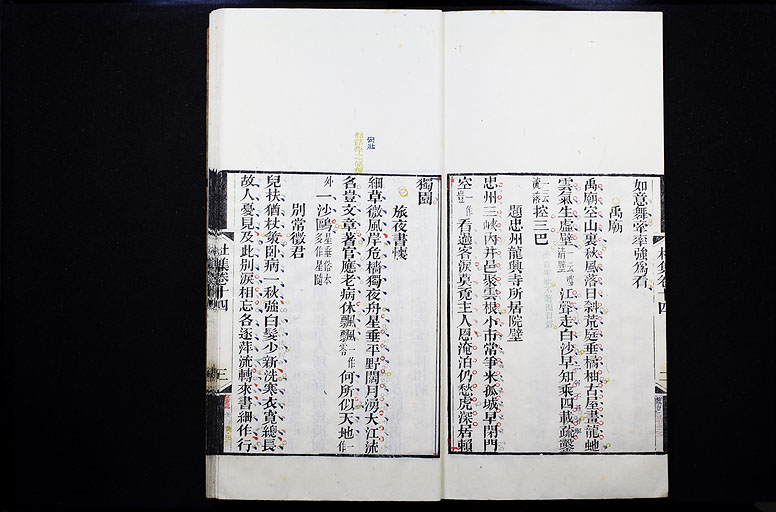 如意舞牽率強爲看
禹廟
禹廟空山裏秋風落日斜荒庭垂橘柚古屋畫龍蛇
雲氣生虛壁江聲走白沙早知乘四載疏鑿
控三巴
題忠州龍興寺所居院壁
忠州三峽內井邑聚雲根小市常爭米孤城早閉門
空一作看過客淚莫覓主人恩淹泊仍愁虎深居賴
獨園
旅夜書懷
細草微風岸危檣獨夜舟星垂平野闊月湧大江流
名豈文章著官應老病休飄飄一作零何所似天地一作
外一沙鷗星垂俗本多作星隨
別常徵君
兒扶猶杖策臥病一秋強白髮少新洗寒衣寬總長
故人憂見及此別淚相忘各逐萍流轉來書細作行
杜集卷十四
三